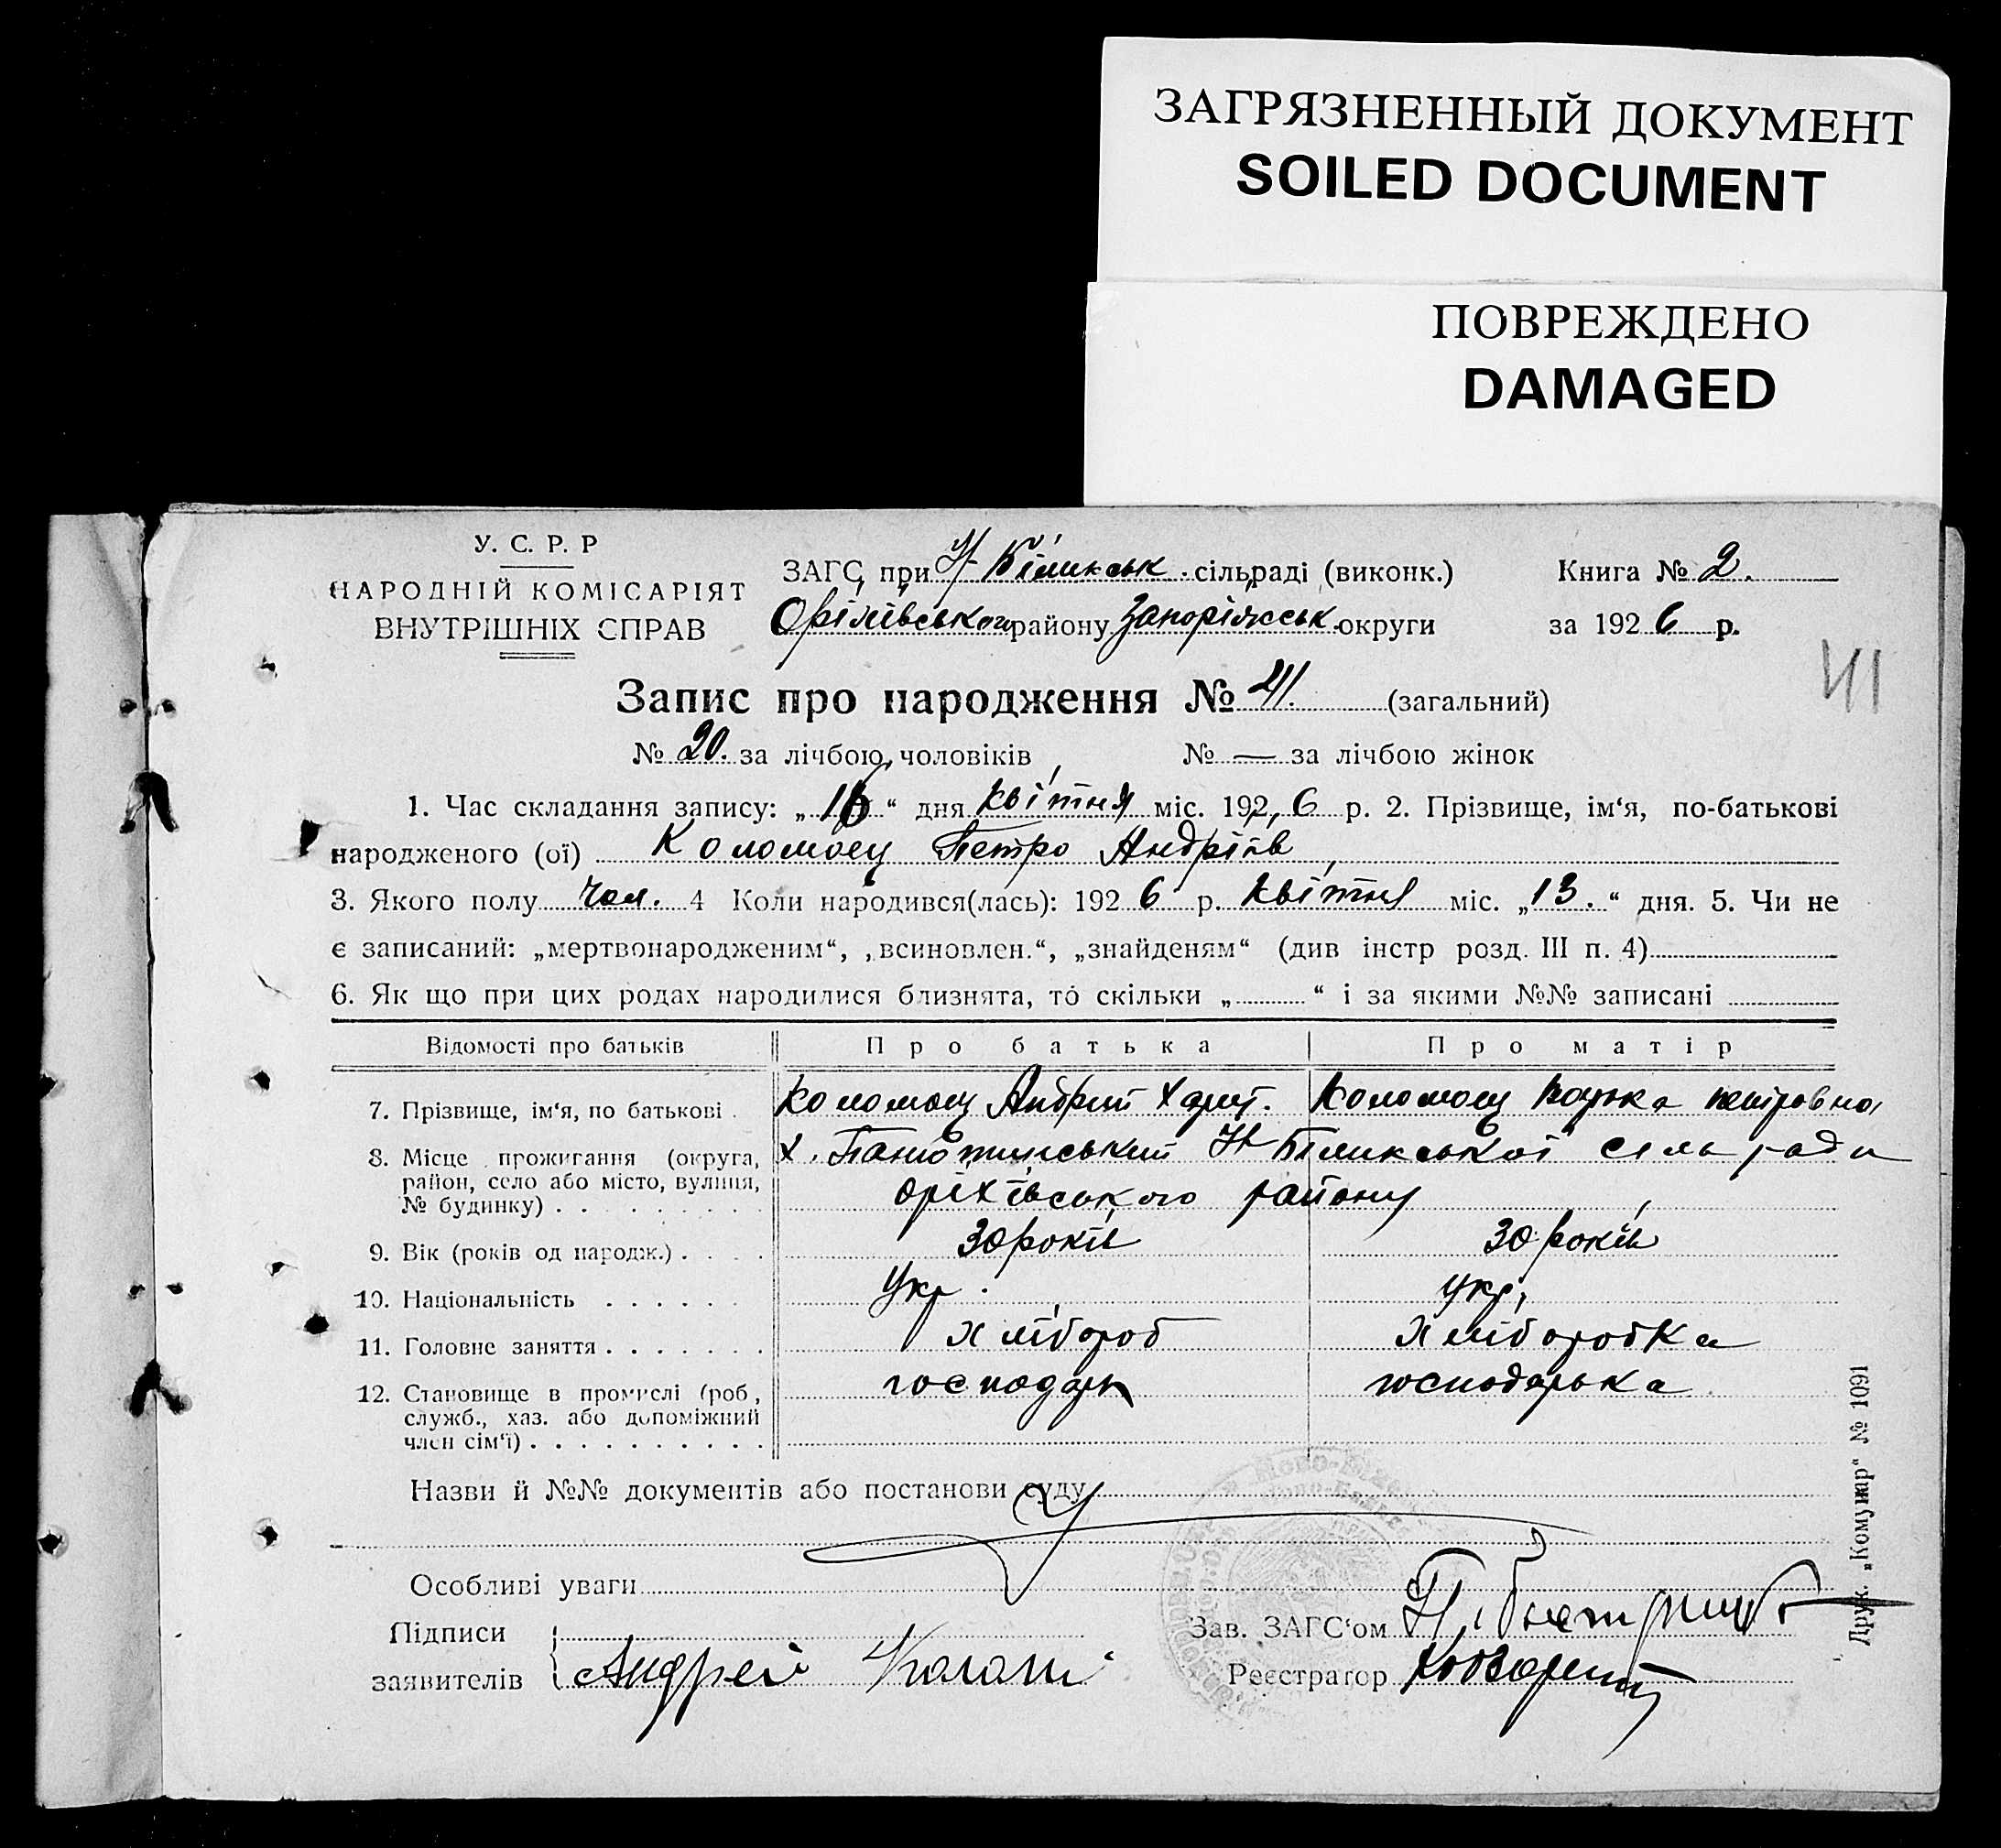 ЗАГРЯЗНЕННЫЙ ДОКУМЕНТ
SOILED DOCUMENT
ПОВРЕЖДЕНО
DAMAGED
У. С. Р. Р
НАРОДНІЙ КОМІСАРІЯТ
ВНУТРІШНІХ СПРАВ
ЗАГС при Н Біликськ. сільраді (виконк.)
Оріхівського району Запоріжськ. округи
Книга № 2.
за 1926 р.
41
Запис про народження № 41. (загальний)
№ 20. за лічбою чоловіків № — за лічбою жінок
1. Час складання запису: „16“ дня квітня міс. 1926 р. 2. Прізвище, ім‘я, по-батькові
народженого (ої) Коломоец Петро Андріїв
3. Якого полу чол. 4 Коли народився(лась): 1926 р. квітня міс. „13.“ дня. 5. Чи не
є записаний: „мертвонародженим“, „всиновлен.“, „знайденям“ (див інстр розд. III п. 4)
6. Як що при цих родах народилися близнята, то скільки „ “ і за якими №№ записані
Відомості про батьків Про батька Про матір
7. Прізвище, ім‘я, по батькові . Коломоец Андрий Харит. Коломоец петровна
8. Місце прожигання (округа, х. Н Біликської сель ради
район, село або місто, вулиця, оріхівського району
№ будинку)
9. Вік (років од народж.) 30 років 30 років
10. Національність укр. укр.
11. Головне заняття хлібороб хліборобка
12. Становище в промислі (роб, господарь господарька
служб., хаз. або допоміжний
член сім‘ї)
Назви й №№ документів або постанови суду
Особливі уваги
Підписи
заявителів Андрей
Зав. ЗАГС‘ом
Реєстратор
Друк. „Комунар“ № 1091